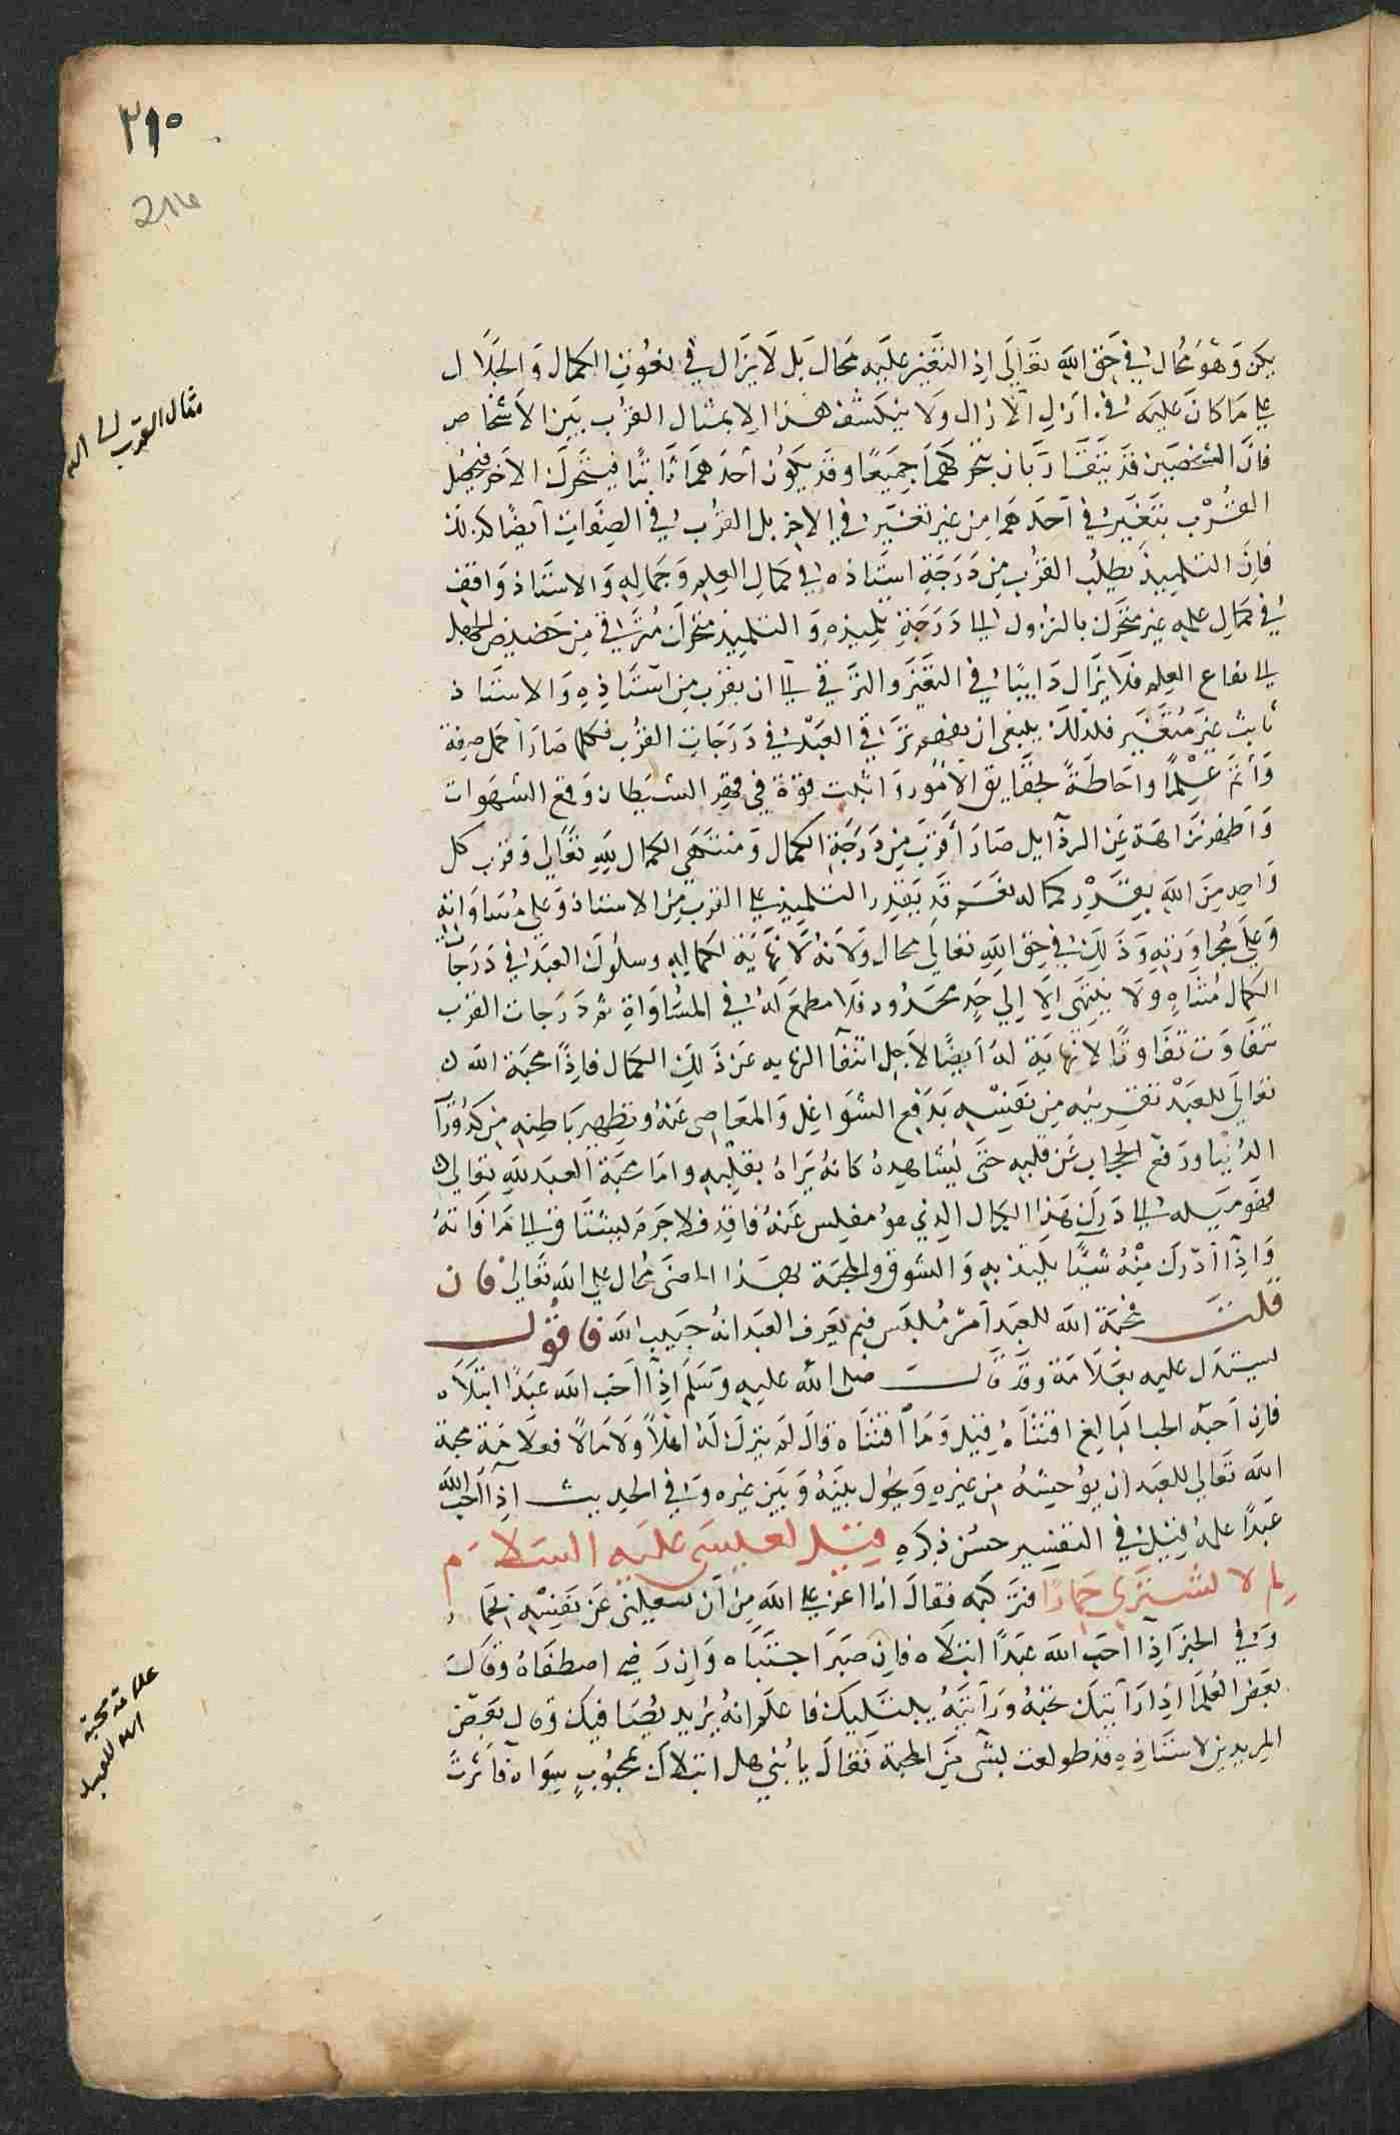 ٣١٥
مثال القرب الى الله
يكن وَهُوَ مُحَال في حَق اللهِ تعَالَى اِذِ التغَيّر علَيه مَحال بَل لَا يزَال في نعُوتِ الكمال وَ الجَلَال
على مَا كانَ عليَه في ازَلِ الازال ولا ينكشف هذا الا بمثال القرُب بَين الاشخاص
فانّ الشخصَين قد يتقَاربَان بتحركهمَا جميعًا وقد يكوُن احدهمَا ثابتًا فيتحَرك الاخر فيحصُل
القُرْب بتغَيّر في احَدهمَا مِن غير تغيّر في الاخر بل القرُب في الصِفَات ايضًا كذلك
فانّ التلميذَ يطلبُ القرُب مِن دَرَجَةِ استَاذه في كمَالِ العِلم وَجَمالِهِ وَالاستَاذ وَاقف
في كمَال علمِه غير متحَرك بالنزول الى دَرَجَةِ تلميذهِ وَ التلميذ متحرك مُتَرقٍ مِن حَضيض الجهل
الى يفاع العِلم فلَا يَزَال دَايبًا في التغَيّر وَالترَقي الى ان يقرب مِن استَاذِهِ وَالاستَاذ
ثابتُ غيرَ مُتغَيّر فلذلك ينبغي ان يفهم ترَقي العَبْد في دَرَجَاتِ القرُب فكلما صَارَ اكمل صِفة
وَأتمّ عِلْمًا واحَاطةً بحقَايق الامُور وَ اثبت قوَّة في قهرِ الشيَطان وَقمع الشهَوات
وَ اظهر نزَاهة عَن الرذايل صَارَ أقرَبَ مِن دَرَجَةِ الكمال وَ منتهَى الكمال للهِ تعَالى وَ قرب كل
وَاحِد مِنَ اللهِ بقَدْرِ كماله نعَم قد يَقدِر التلميذ على القربِ مِنَ الاستاذ وَعلى مُسَاوَاتِهِ
وَعلى مُجاوَزتِهِ وَذَلِكَ في حَق اللهِ تعَالى محال وَلانهُ لَا نهَايَة لكمالِهِ وسلُوك العَبد في دَرَجَات
الكمال مُتنَاهٍ ولَا ينتهَى الَا الي حَدٍ محدُود فلَا مطمعَ لهُ في المسَاوَاةِ ثم دَرَجات القرب
تتفاوَت تفَاوتًا لا نهَايَة لهُ ايضًا لاجل انتفآ النهايه عَن ذَلِكَ الكمال فاذًا محبَة الله
تعَالى للعَبْد تقريبُه مِن نفسْه بَدفع الشوَاغل وَالمعَاصى عَنهُ وتطهير بَاطِنه مِن كدُورَات
الدنيَا ورَفع الحجاب عَن قلبِه حتَى يُشاهدهُ كانهُ يَرَاهُ بقلبِهِ واما محبَة العبد لله تعَالى
فهَو مَيله الى دَرك هَذا الكمال الذي هوُ مفلِس عَنهُ فاقد فلا جَرمَ يشتَاق الى مَا فَاتهُ
وَ اِذَا ادْرَك مِنْهُ شيًا يلتذ بهِ وَ الشوق والمحبَة بهَذا المعنَى محَال على الله تعَالى فان
قلت محَبة الله للعَبد امرٌ مُلتبس فبم يَعرف العَبد انهُ حَبيب الله فاقوُل
يستدل عليه بعَلَامَة وقد قال صَلى الله عليه وَسَلم اذا احَب الله عَبدًا ابتَلَاه
فان احَبَه الحب البَالغ اقتنَاهُ قيل وَمَا اقتنَاه قالَ لم يترك لهُ اهْلاً وَلا مَالاً فعلامَة محبة
الله تعَالى للعَبد ان يوُحشهُ مِن غيرِهِ وَيحُول بيَنهُ وَبَين غيره وَفي الحديث اذا أحَب الله
عَبدًا
قيل لعيسَى عليَه السَلام
لم لا تشتَري حمَارًا فتركبَه فقالَ انا اعز على الله مِن أن يشغلنى عَن نفسْه بحمار
وَفي الخبر اِذا احَب الله عَبَدًا ابتلَاه فان صَبَر اجتبَاه وَاِن رَضى اصطفَاهُ وقال
بعَض العُلمَا اذا رَايتكَ تحبُهُ وَرَأيتَهُ يبتَليكَ فاعلَم انهُ يُريد يصَافيكَ وقال بعَض
المريدِين لاستَاذِهِ قد طولعت بشى مِنَ المحبة فقالَ يا بُني هل ابتلاك بمحبُوبٍ سِوَاه فاثرتَ
علامة محبة
الله للعبد